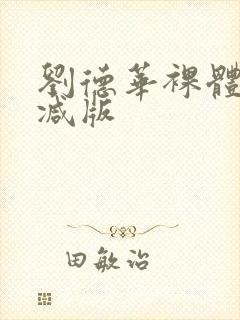 劉德華裸體
减版
田敏治